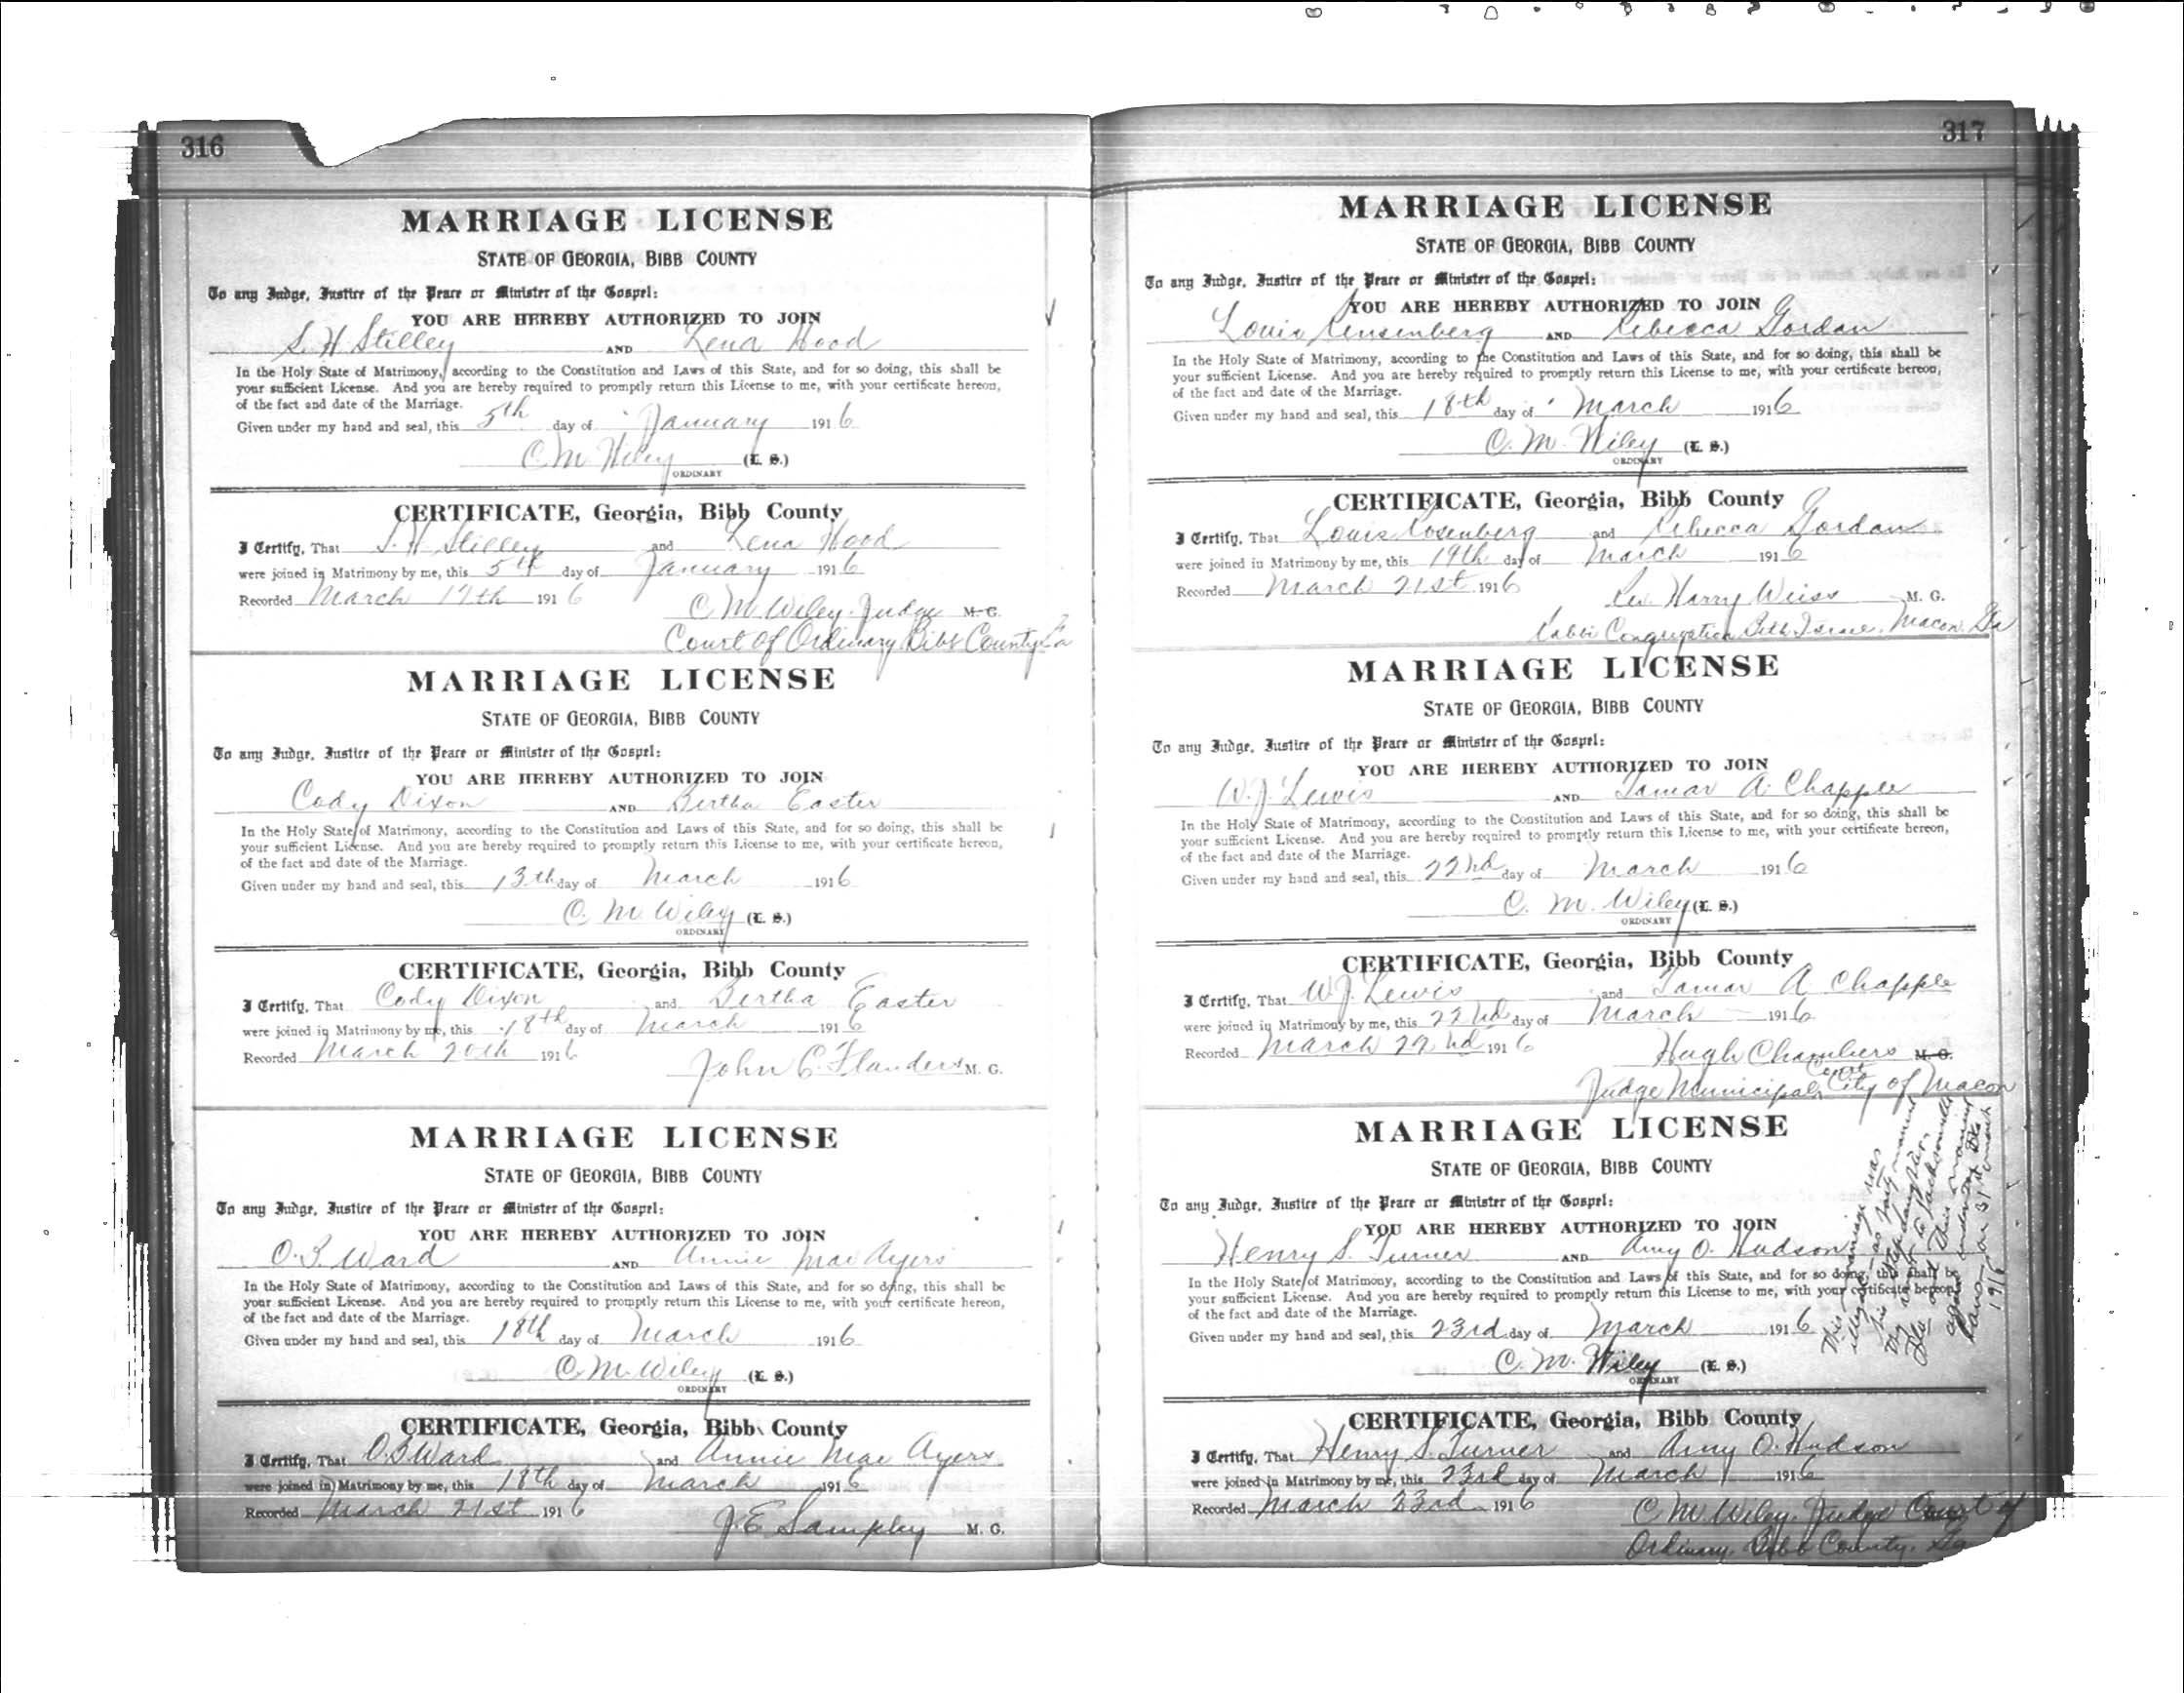 316
MARRIAGE LICENSE
STATE OF GEORGIA, BIBB COUNTY
To any Judge, Justice of the Peace or Minister of the Gospel:
YOU ARE HEREBY AUTHORIZED TO JOIN
S. H Stilley AND Lena Hood
In the Holy State of Matrimony, according to the Constitution and Laws of this State, and for so doing, this shall be
your sufficient License. And you are hereby required to promptly return this License to me, with your certificate hereon,
of the fact and date of the Marriage.
Given under my hand and seal, this 5th day of January 1916
C. M. Wiley (L. S.)
ORDINARY
CERTIFICATE, Georgia, Bibb County
I Certify, That S. H Stilley and Lena Hood
were joined in Matrimony by me, this 5th day of January 1916
Recorded March 17th 1916
C. M. Wiley. Judge M. G.
Court of Ordinary Bibb County Ga
MARRIAGE LICENSE
STATE OF GEORGIA, BIBB COUNTY
To any Judge, Justice of the Peace or Minister of the Gospel:
YOU ARE HEREBY AUTHORIZED TO JOIN
Cody Dixon AND Bertha Easter
In the Holy State of Matrimony, according to the Constitution and Laws of this State, and for so doing, this shall be
your sufficient License. And you are hereby required to promptly return this License to me, with your certificate hereon,
of the fact and date of the Marriage.
Given under my hand and seal, this 13th day of March 1916
C. M Wiley (L. S.)
ORDINARY
CERTIFICATE, Georgia, Bibb County
I Certify, That Cody Dixon and Bertha Easter
were joined in Matrimony by me, this 18th day of March 1916
Recorded March 20th 1916
John C. Flanders M. G.
MARRIAGE LICENSE
STATE OF GEORGIA, BIBB COUNTY
To any Judge, Justice of the Peace or Minister of the Gospel:
YOU ARE HEREBY AUTHORIZED TO JOIN
O. B. Ward AND Annie Mae Ayers
In the Holy State of Matrimony, according to the Constitution and Laws of this State, and for so doing, this shall be
your sufficient License. And you are hereby required to promptly return this License to me, with your certificate hereon,
of the fact and date of the Marriage.
Given under my hand and seal, this 18th day of March 1916
C. M. Wiley (L. S.)
ORDINARY
CERTIFICATE, Georgia, Bibb County
I Certify, That O. B Ward and Annie Mae Ayers
were joined in Matrimony by me, this 18th day of March 1916
Recorded March 21st 1916
J. E. Sampley M. G.
317
MARRIAGE LICENSE
STATE OF GEORGIA, BIBB COUNTY
To any Judge, Justice of the Peace or Minister of the Gospel:
YOU ARE HEREBY AUTHORIZED TO JOIN
Louis AND Rebecca Gordan
In the Holy State of Matrimony, according to the Constitution and Laws of this State, and for so doing, this shall be
your sufficient License. And you are hereby required to promptly return this License to me, with your certificate hereon,
of the fact and date of the Marriage.
Given under my hand and seal, this 18th day of March 1916
C. M. Wiley (L. S.)
ORDINARY
CERTIFICATE, Georgia, Bibb County
I Certify, That Louis Rosenberg and Rebecca Gordan
were joined in Matrimony by me, this 19th day of March 1916
Recorded March 21st 1916
Rev. Harry Weiss M. G.
Rabbi Congregation Beth Israel. Macon. Ga
MARRIAGE LICENSE
STATE OF GEORGIA, BIBB COUNTY
To any Judge, Justice of the Peace or Minister of the Gospel:
YOU ARE HEREBY AUTHORIZED TO JOIN
W. J. Lewis AND Tamar A. Chapple
In the Holy State of Matrimony, according to the Constitution and Laws of this State, and for so doing, this shall be
your sufficient License. And you are hereby required to promptly return this License to me, with your certificate hereon,
of the fact and date of the Marriage.
Given under my hand and seal, this 22nd day of March 1916
C. M. Wiley (L. S.)
ORDINARY
CERTIFICATE, Georgia, Bibb County
I Certify, That W. J. Lewis and Tamar A Chapple
were joined in Matrimony by me, this 22nd day of March 1916
Recorded March 22nd 1916
Hugh Chambers M. G.
Judge Municipal Court City of Macon
MARRIAGE LICENSE
STATE OF GEORGIA, BIBB COUNTY
To any Judge, Justice of the Peace or Minister of the Gospel:
YOU ARE HEREBY AUTHORIZED TO JOIN
Henry S. Turner AND Amy O. Hudson
In the Holy State of Matrimony, according to the Constitution and Laws of this State, and for so doing, this shall be
your sufficient License. And you are hereby required to promptly return this License to me, with your certificate hereon,
of the fact and date of the Marriage.
Given under my hand and seal, this 23rd day of March 1916
C. M. Wiley (L. S.)
ORDINARY
This marriage was
illegal as Tony married
his step daughter.
They went to Jacksonville
Fla and this
again under
Laws on 31st March
1916
CERTIFICATE, Georgia, Bibb County
I Certify, That Henry S. Turner and Amy O. Hudson
were joined in Matrimony by me, this 23rd day of March 1916
Recorded March 23rd 1916
C. M. Wiley. Judge Court of
Ordinary. Bibb County. Ga